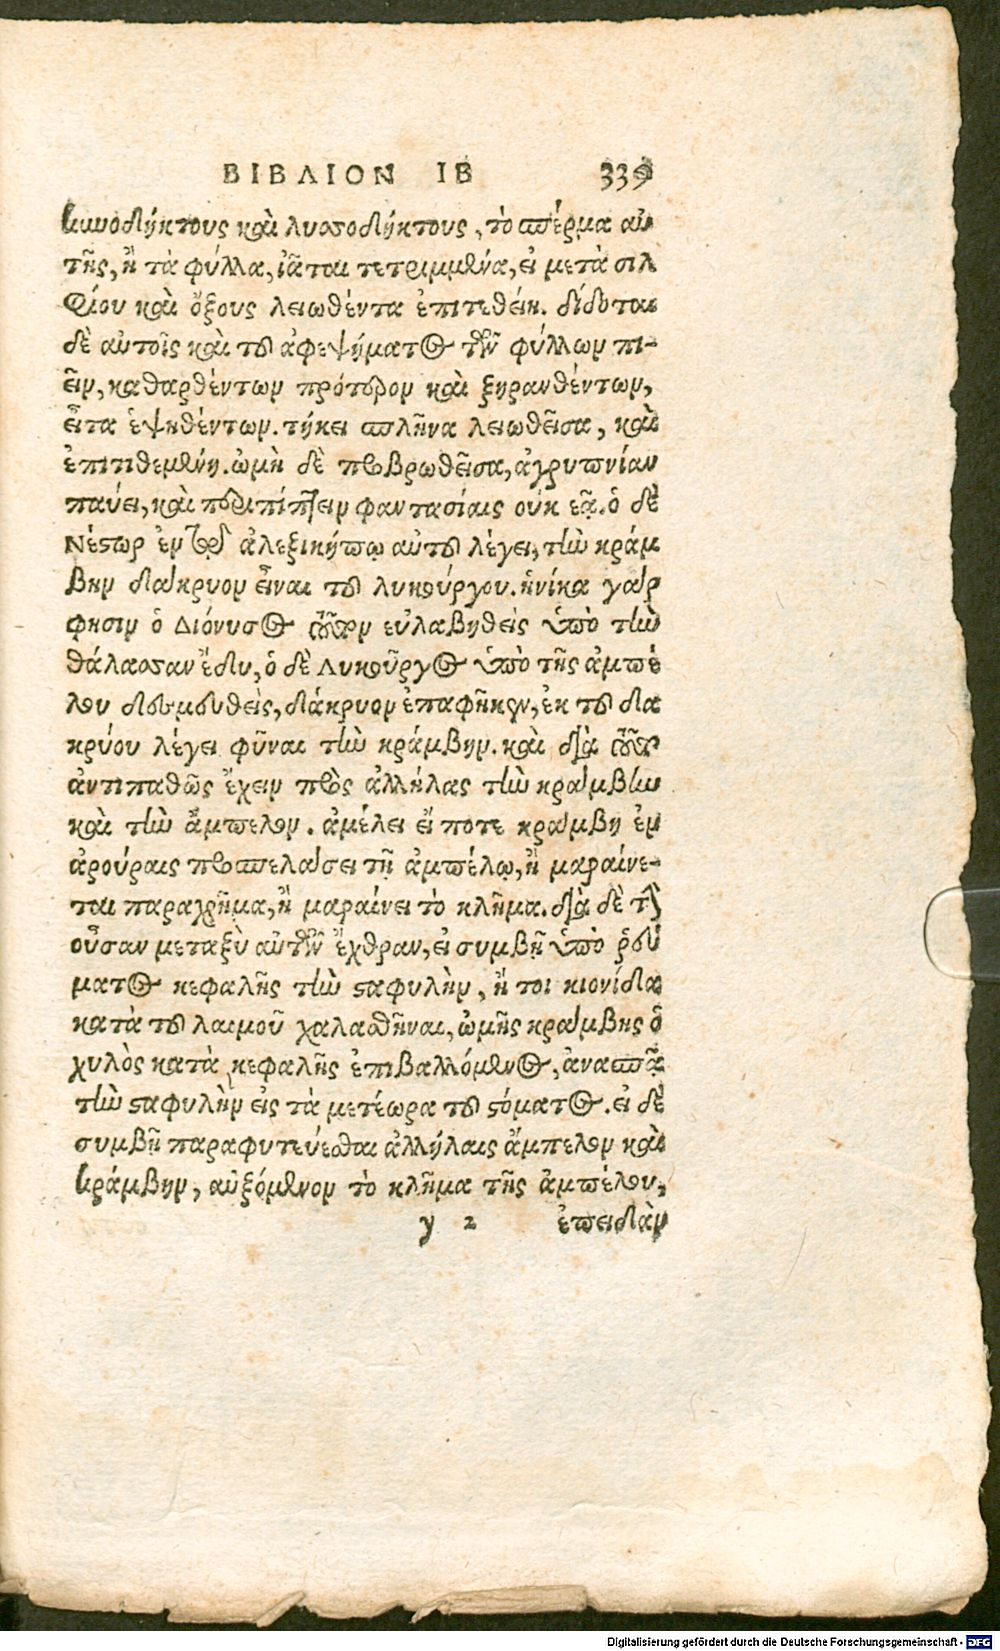 ΒΙΒΛΙΟΝ ΙΒ 339
κυνοδήκτους καὶ λυσσοδήκτους, τὸ σπέρμα αὐ
τῆς, ἢ τὰ φύλλα, ἰᾶται τετριμμένα, εἰ μετὰ σιλ
φίου καὶ ὄξους λειωθέντα ἐπιτεθείη. δίδοται
δὲ αὐτοῖς καὶ τοῦ ἀφεψήματος τῶν φύλλων πι-
εῖν, καθαρθέντων πρότερον καὶ ξηρανθέντων,
εἶτα ἑψηθέντων. τήκει σπλῆνα λειωθεῖσα, καὶ
ἐπιτιθεμένη. ὠμὴ δὲ προβρωθεῖσα, ἀγρυπνίαν
παύει, καὶ περιπίπτειν φαντασίαις οὐκ ἐᾷ. ὁ δὲ
Νέστωρ ἐν τῷ ἀλεξικήπῳ αὐτοῦ λέγει, τὴν κράμ
βην δάκρυον εἶναι τοῦ λυκούργου. ἡνίκα γάρ
φησιν ὁ Διόνυσος τοῦτον εὐλαβηθεὶς ὑπὸ τὴν
θάλασσαν ἔδυ, ὁ δὲ Λυκοῦργος ὑπὸ τῆς ἀμπέ
λου δεσμευθεὶς, δάκρυον ἐπαφῆκεν, ἐκ τοῦ δα
κρύου λέγει φῦναι τὴν κράμβην. καὶ διὰ τοῦτο
ἀντιπαθῶς ἔχειν πρὸς ἀλλήλας τὴν κράμβην
καὶ τὴν ἄμπελον. ἀμέλει εἴ ποτε κράμβη ἐν
ἀρούραις προσπελάσει τῇ ἀμπέλῳ, ἢ μαραίνε-
ται παραχρῆμα, ἢ μαραίνει τὸ κλῆμα. διὰ δὲ τὴν
οὖσαν μεταξὺ αὐτῶν ἔχθραν, εἰ συμβῇ ὑπὸ ῥεύ
ματος κεφαλῆς τὴν σταφυλὴν, ἤ τοι κιονίδα
κατὰ τοῦ λαιμοῦ χαλασθῆναι, ὠμῆς κράμβης ὁ
χυλὸς κατὰ κεφαλῆς ἐπιβαλλόμενος, ἀνασπᾷ
τὴν σταφυλὴν εἰς τὰ μετέωρα τοῦ στόματος. εἰ δὲ
συμβῇ παραφυτεύεσθαι ἀλλήλαις ἄμπελον καὶ
κράμβην, αὐξόμενον τὸ κλῆμα τῆς ἀμπέλου,
y 2 ἐπειδὰν
Digitalisierung gefördert durch die Deutsche Forschungsgemeinschaft - DFG